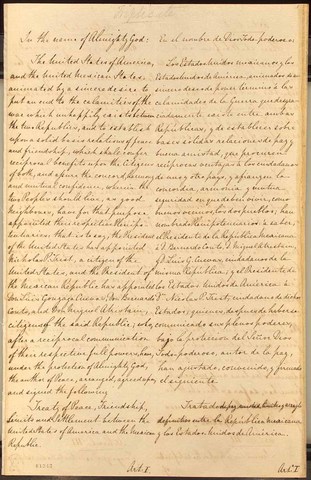 In the name of Almighty God:
The United States of America,
and the United Mexican States,
animated by a sincere desire to
put an end to the calamities of the
war which unhappily exists between
the two Republics, and to establish
upon a solid basis relations of peace
and friendship, which shall confer
reciprocal benefits upon the citizens
of both, and assure the concord, harmony
and mutual confidence, wherein the
two Peoples should live, as good
Neighbours, have for that purpose
appointed their respective Plenipo-
tentiaries: that is to say, the President
of the United States has appointed
Nicholas P. Trist, a citizen of the
United States, and the President of
the Mexican Republic has appointed
Don Luis Gonzaga Cuevas, Don Bernardo
Couto, and Don Miguel Atristain,
citizens of the said Republic; who,
after a reciprocal communication
of their respective full powers, have,
under the protection of Almighty God,
the author of Peace, arranged, agreed upon,
and signed the following
Treaty of Peace, Friendship,
Limits and Settlement between the
United States of America and the Mexican
Republic.
Art. I.
En el nombre de Dios Todopoderoso:
Los Estados Unidos mexicanos y los
Estados Unidos de América, animados de un
sincero deseo de poner término a las
calamidades de la Guerra que desgra-
ciadamente existe entre ambas
Repúblicas, y de establecer sobre
bases sólidas relaciones de paz y
buena amistad, que procuren
recíprocas ventajas a los ciudadanos
de uno y otro pays, y afianzen la
concordia, armonía y mutua
seguridad en que deben vivir, como
buenos vecinos, los dos pueblos; han
nombrado Plenipotenciarios a saber:
el Presidente de la República mexicana
a D. Bernardo Couto, D. Miguel Atristain,
y D. Luis G. Cuevas, ciudadanos de la
misma República; y el Presidente de
los Estados Unidos de América a
D. Nicolas P. Trist, ciudadano de dichos
Estados; quienes, después de haberse
comunicado sus plenos poderes,
bajo la protección del Señor Dios
Todopoderoso, autor de la paz,
han ajustado, convenido, y firmado
el siguiente
Tratado de paz, amistad, límites y arreglo
definitivo entre la República mexicana
y los Estados Unidos de América.
Art. I